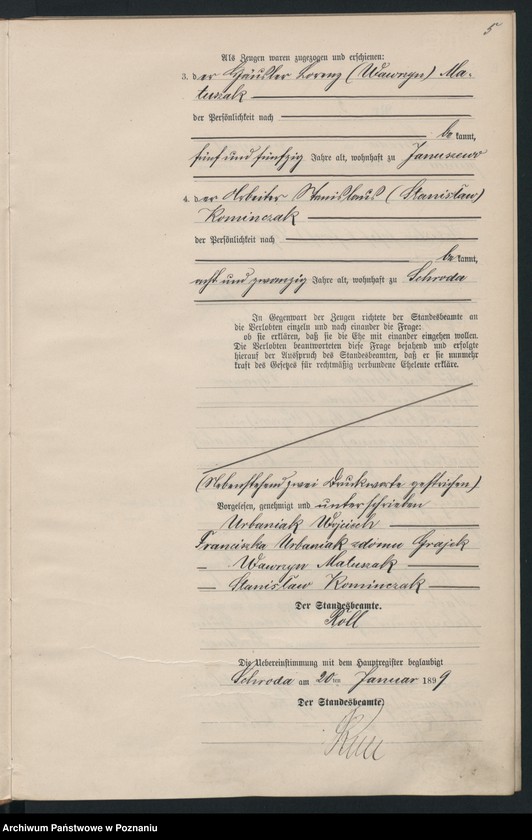 5
Als Zeugen waren zugezogen und erschienen:
3. der Häusler Lorenz (Wawrzyn) Ma-
tuszak
der Persönlichkeit nach
bekannt,
fünf und fünfzig Jahre alt, wohnhaft zu Januszewo
4. der Arbeiter Stanislaus (Stanisław)
Kominczak
der Persönlichkeit nach
bekannt,
acht und zwanzig Jahre alt, wohnhaft zu Schroda
In Gegenwart der Zeugen richtete der Standesbeamte an
die Verlobten einzeln und nach einander die Frage:
ob sie erklären, daß sie die Ehe mit einander eingehen wollen.
Die Verlobten beantworteten diese Frage bejahend und erfolgte
hierauf der Ausspruch des Standesbeamten, daß er sie nunmehr
kraft des Gesetzes für rechtmäßig verbundene Eheleute erkläre.
(Nebenstehend zwei Druckworte gestrichen)
Vorgelesen, genehmigt und unterschrieben
Urbaniak Wojciech
Franciszka Urbaniak zdomu Grajek
Wawrzyn Matuszak
Stanisław Kominczak
Der Standesbeamte.
Röll
Die Uebereinstimmung mit dem Hauptregister beglaubigt
Schroda am 20ten Januar 1899
Der Standesbeamte
Archiwum Państwowe w Poznaniu